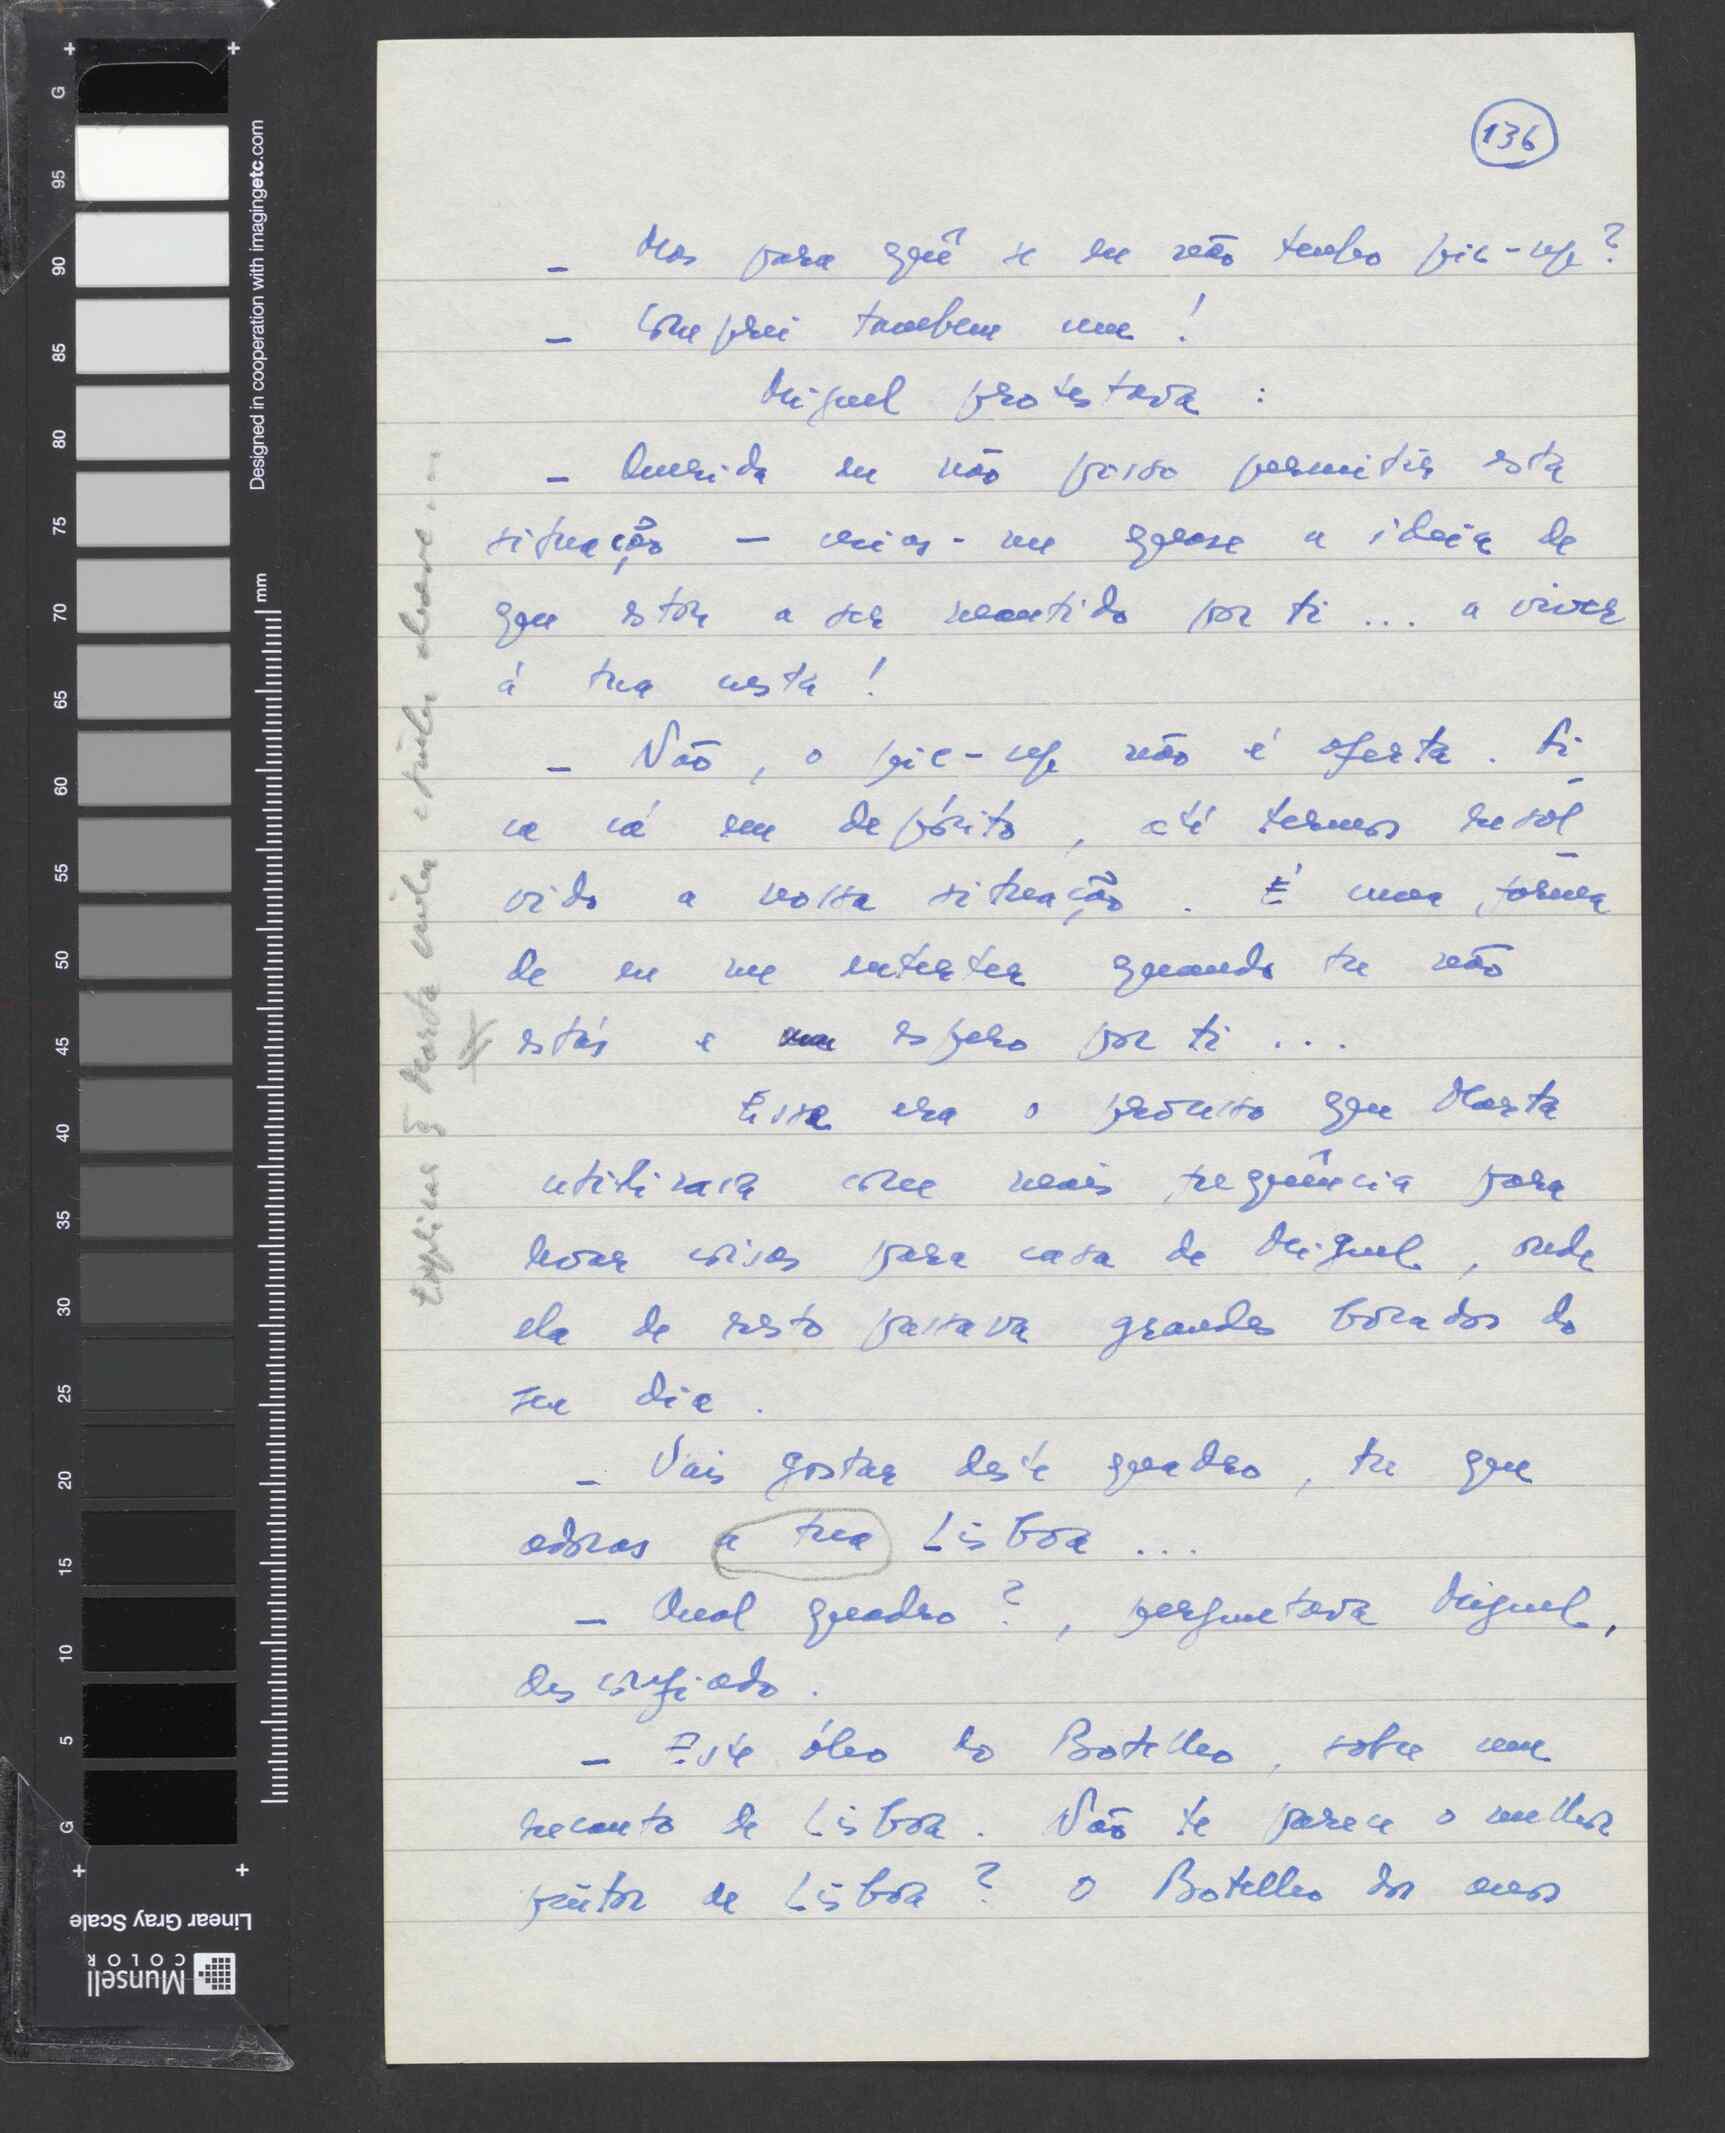 136
- Mas para quê se eu não tenho pic-up?
- Comprei tambem um!
Miguel protestava:
- Querida eu não posso permitir esta
situação - crias-me quase a ideia de
que estou a ser mantido por ti ... a viver
á tua custa!
- Não, o pic-up não é oferta. Fi-
ca cá em depósito, até termos resol-
vido a nossa situação. É uma forma
de eu me entreter quando tu não
estás e espero por ti ...
Essa era o processo que Marta
utilizava com mais frequência para
levar coisas para casa de Miguel, onde
ela de resto passava grandes bocados do
seu dia.
- Vais gostar deste quadro, tu que
adoras a tua Lisboa ...
- Qual quadro?, perguntava Miguel,
desconfiado.
- Este óleo do Botelho, sobre um
recanto de Lisboa. Não te parece o melhor
pintor de Lisboa? O Botelho dos anos
Explicar q Marta tinha chave ...
G
95
90
85
80
75
70
65
60
55
50
45
40
35
30
25
20
15
10
5
G
Designed in cooperation with imagingetc.com
mm
Linear Gray Scale
Munsell
COLOR